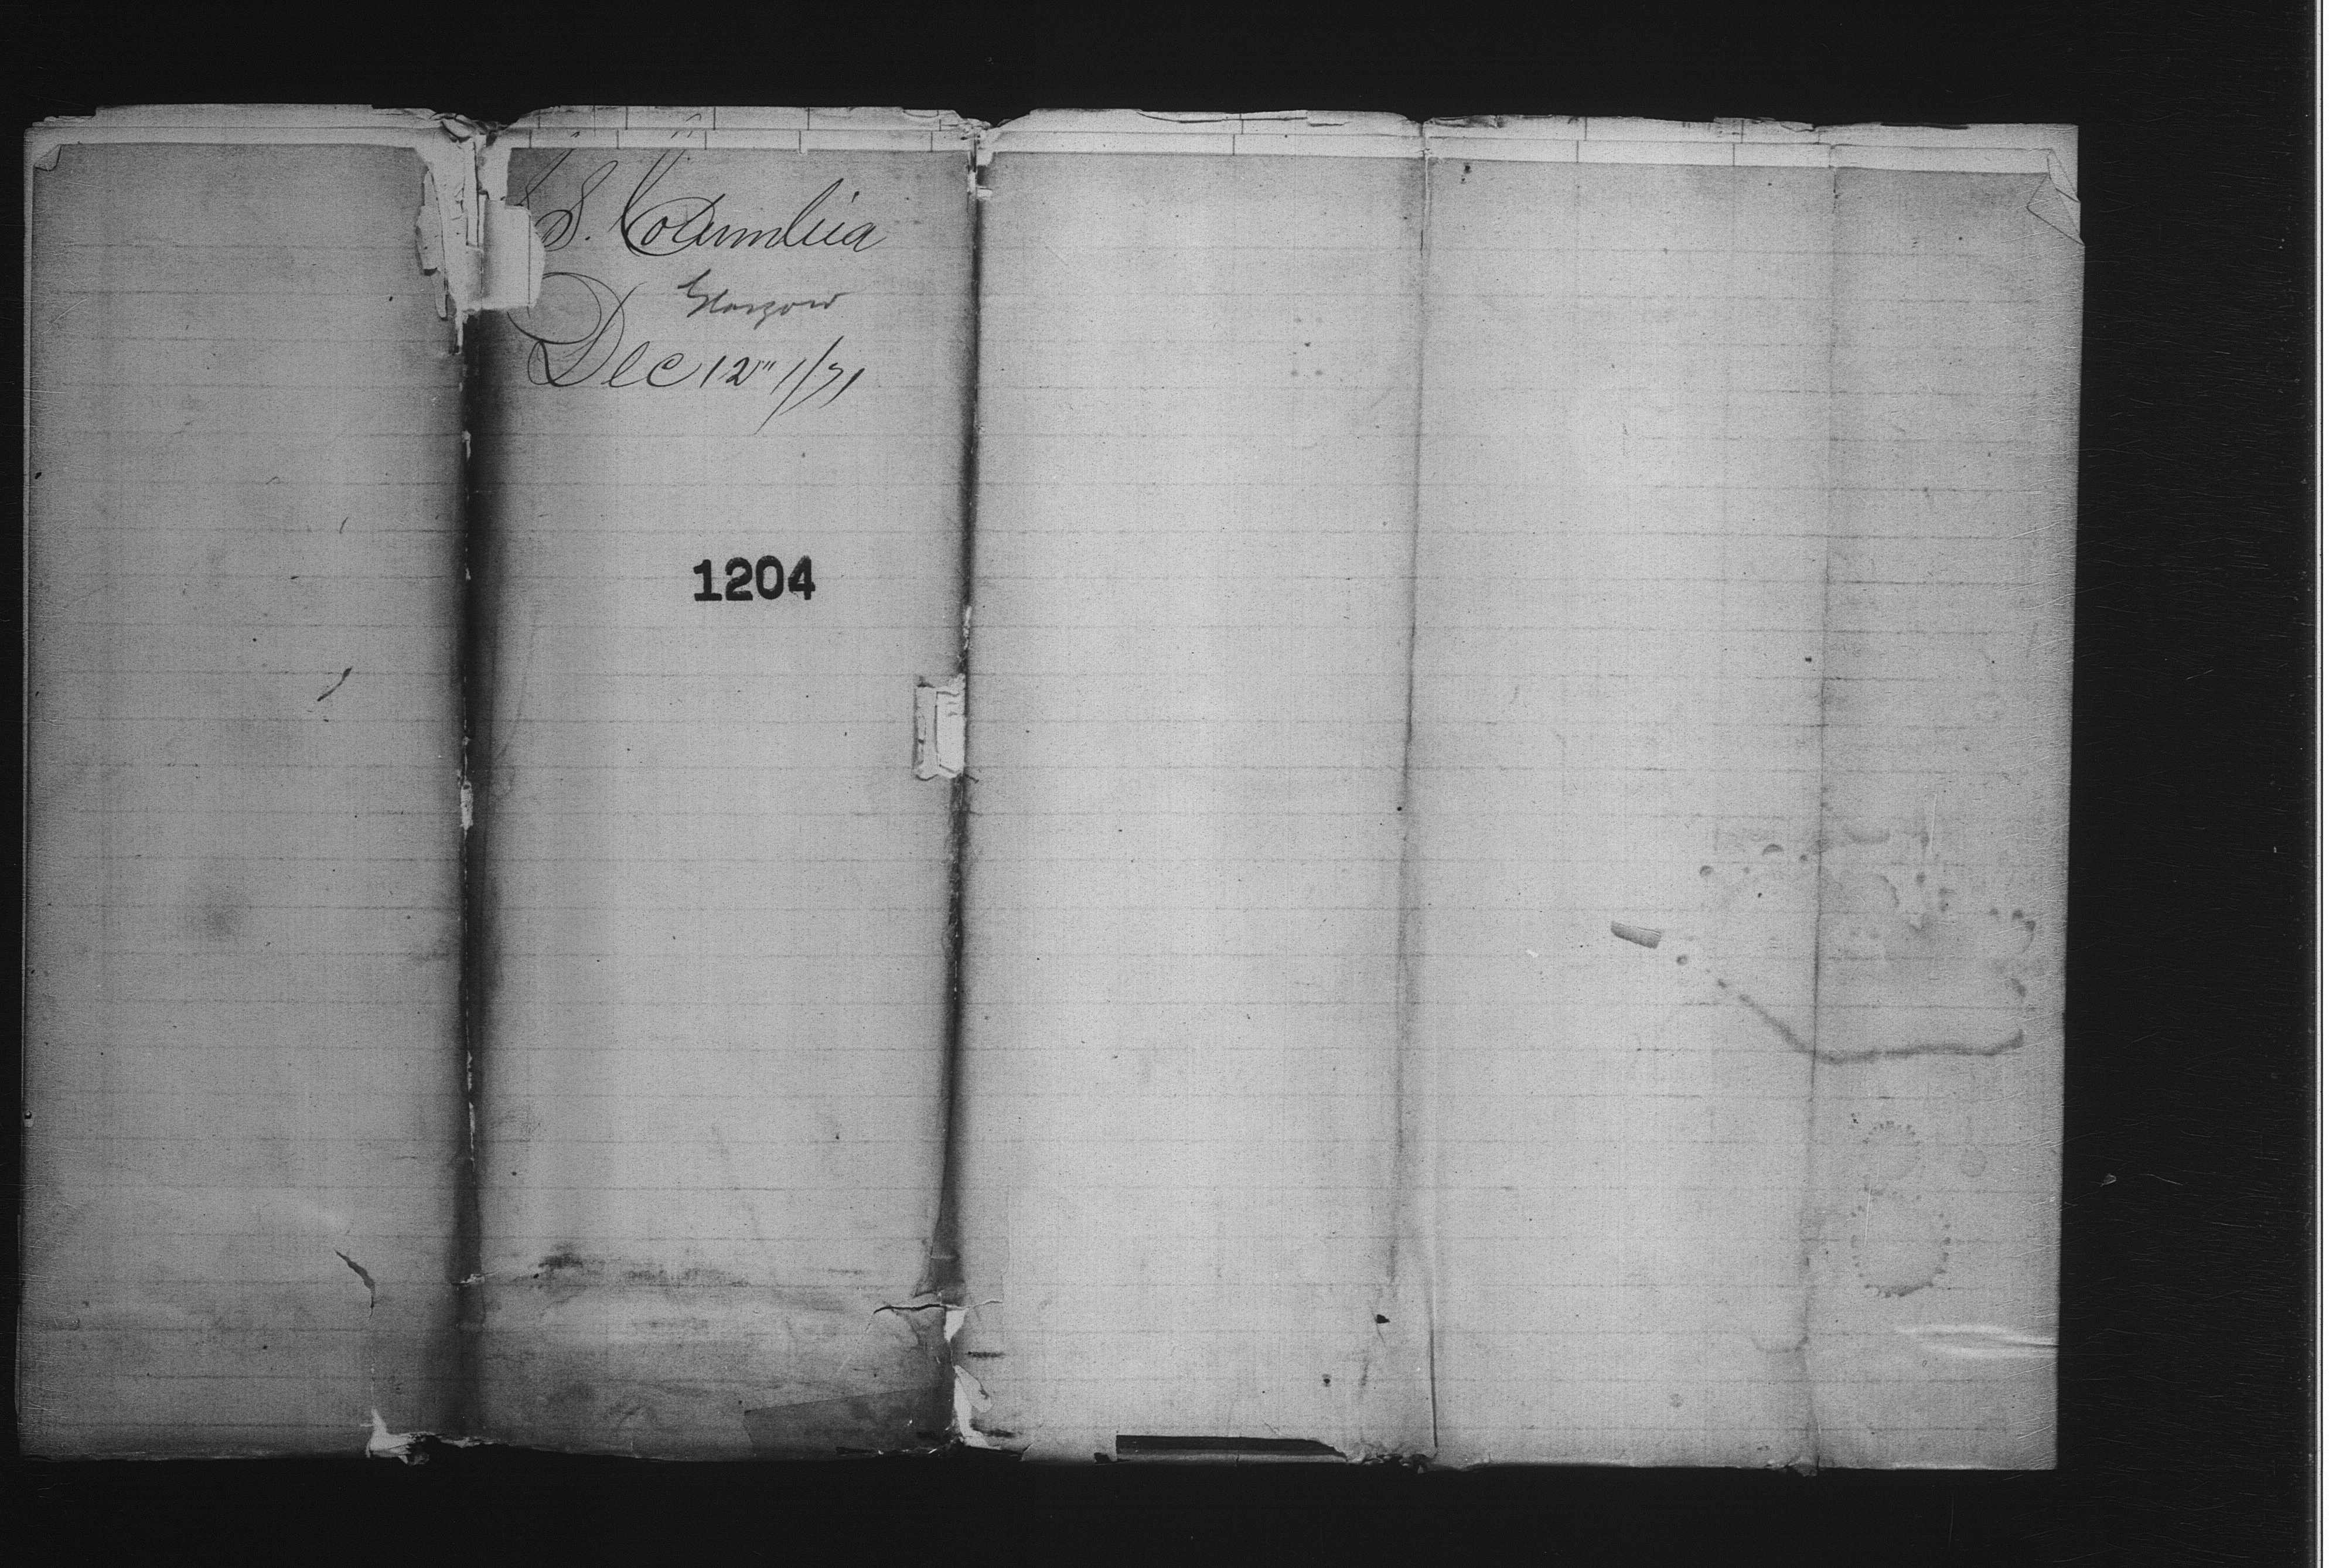 S. Columbia
Glasgow
Dec 12" 1/71
1204